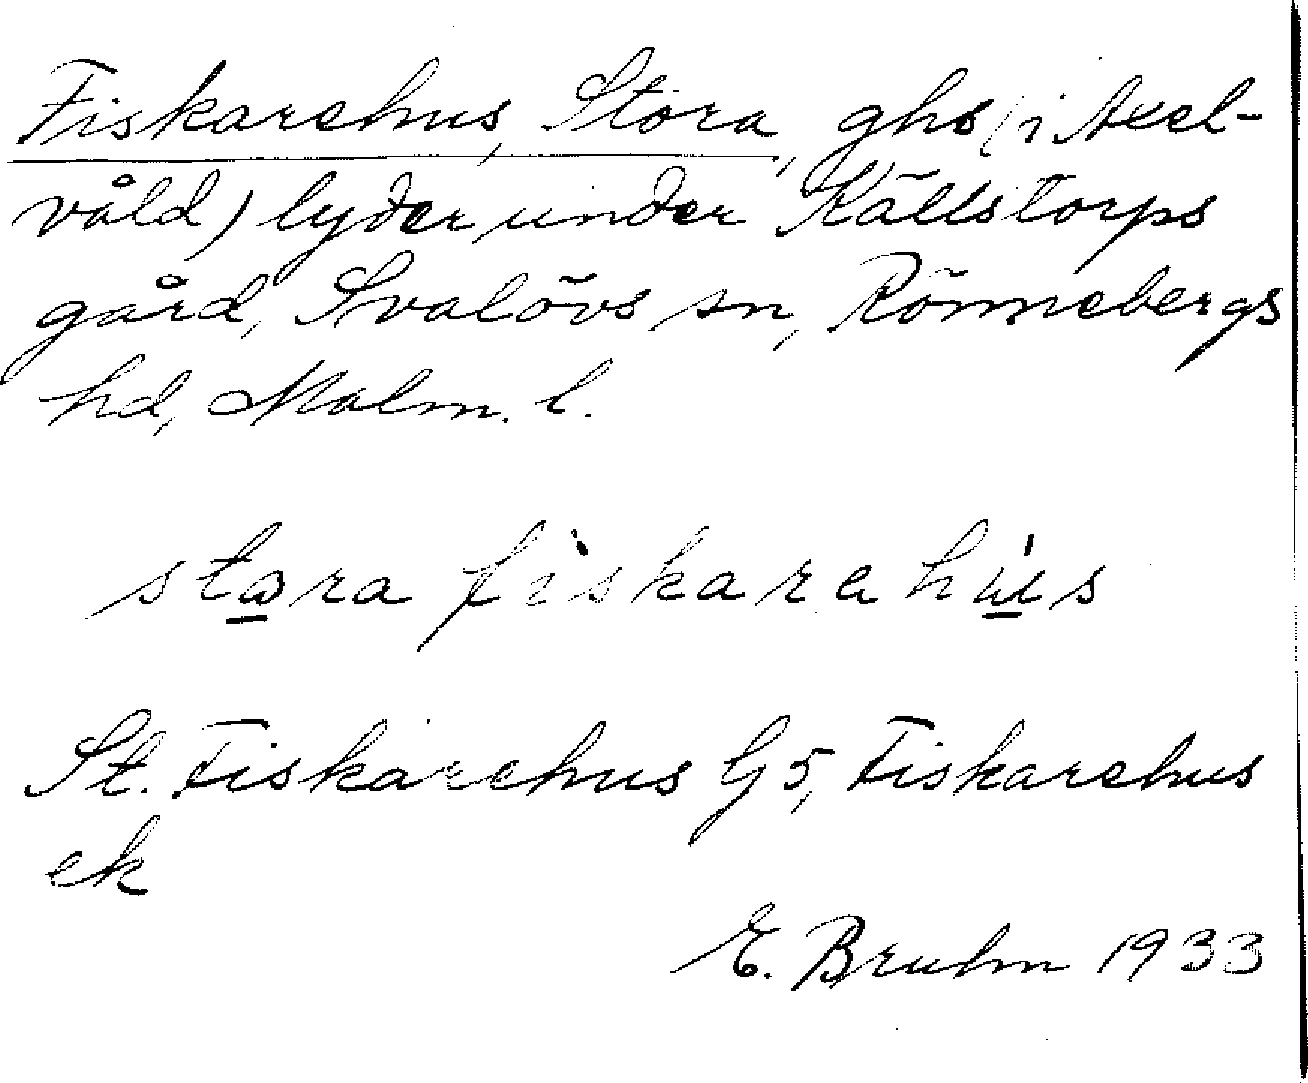 Fiskarehus, Stora, ghs (i Axel-
våld) lyder under Källstorps
gård, Svalövs sn, Rönnebergs
hd, Malm. l.
stora fìskarahu̍s
St. Fiskarehus G 5, Fiskarehus
ek
E. Bruhn 1933